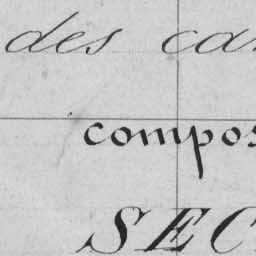 des car
compos
SEC